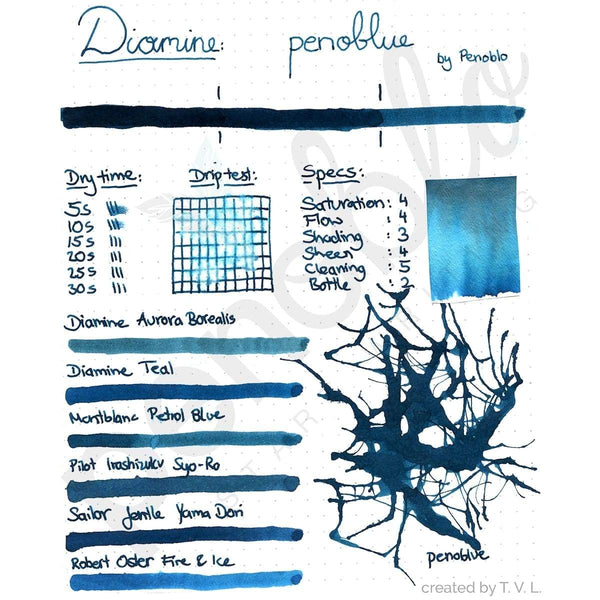 Diamine: penoblue
by Penoblo
Dry time:
5s
10s
15s
20s
25s
30s
Driptest:
Specs:
Saturation: 4
Flow : 4
Shading : 3
Sheen : 4
Cleaning : 5
Bottle : 2
Diamine Aurora Borealis
Diamine Teal
Montblanc Petrol Blue
Pilot Iroshizuku Syo-Ro
Sailor Jentle Yama Dori
Robert Oster Fire & Ice
penoblue
penoblo
created by T. V. L.